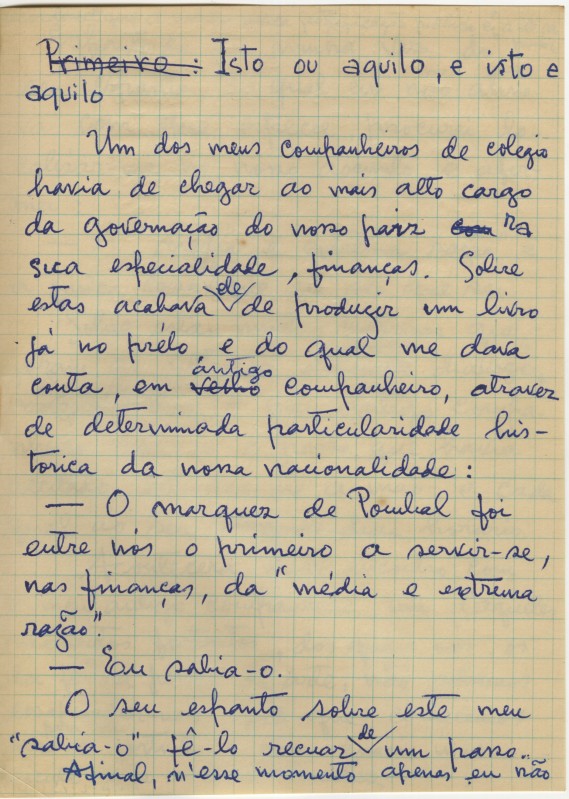 Primeiro: Isto ou aquilo, e isto e
aquilo
Um dos meus companheiros de colegio
havia de chegar ao mais alto cargo
da governação do nosso paiz com na
sua especialidade, finanças. Sobre
estas acabava ele de produzir um livro
já no prélo e do qual me dava
conta, em velho antigo companheiro, atravez
de determinada particularidade his-
torica da nossa nacionalidade:
— O marquez de Pombal foi
entre nós o primeiro a servir-se,
nas finanças, da "média e extrema
razão".
— Eu sabia-o.
O seu espanto sobre este meu
"sabia-o" fê-lo recuar de um passo.
Afinal, n'esse momento apenas eu não